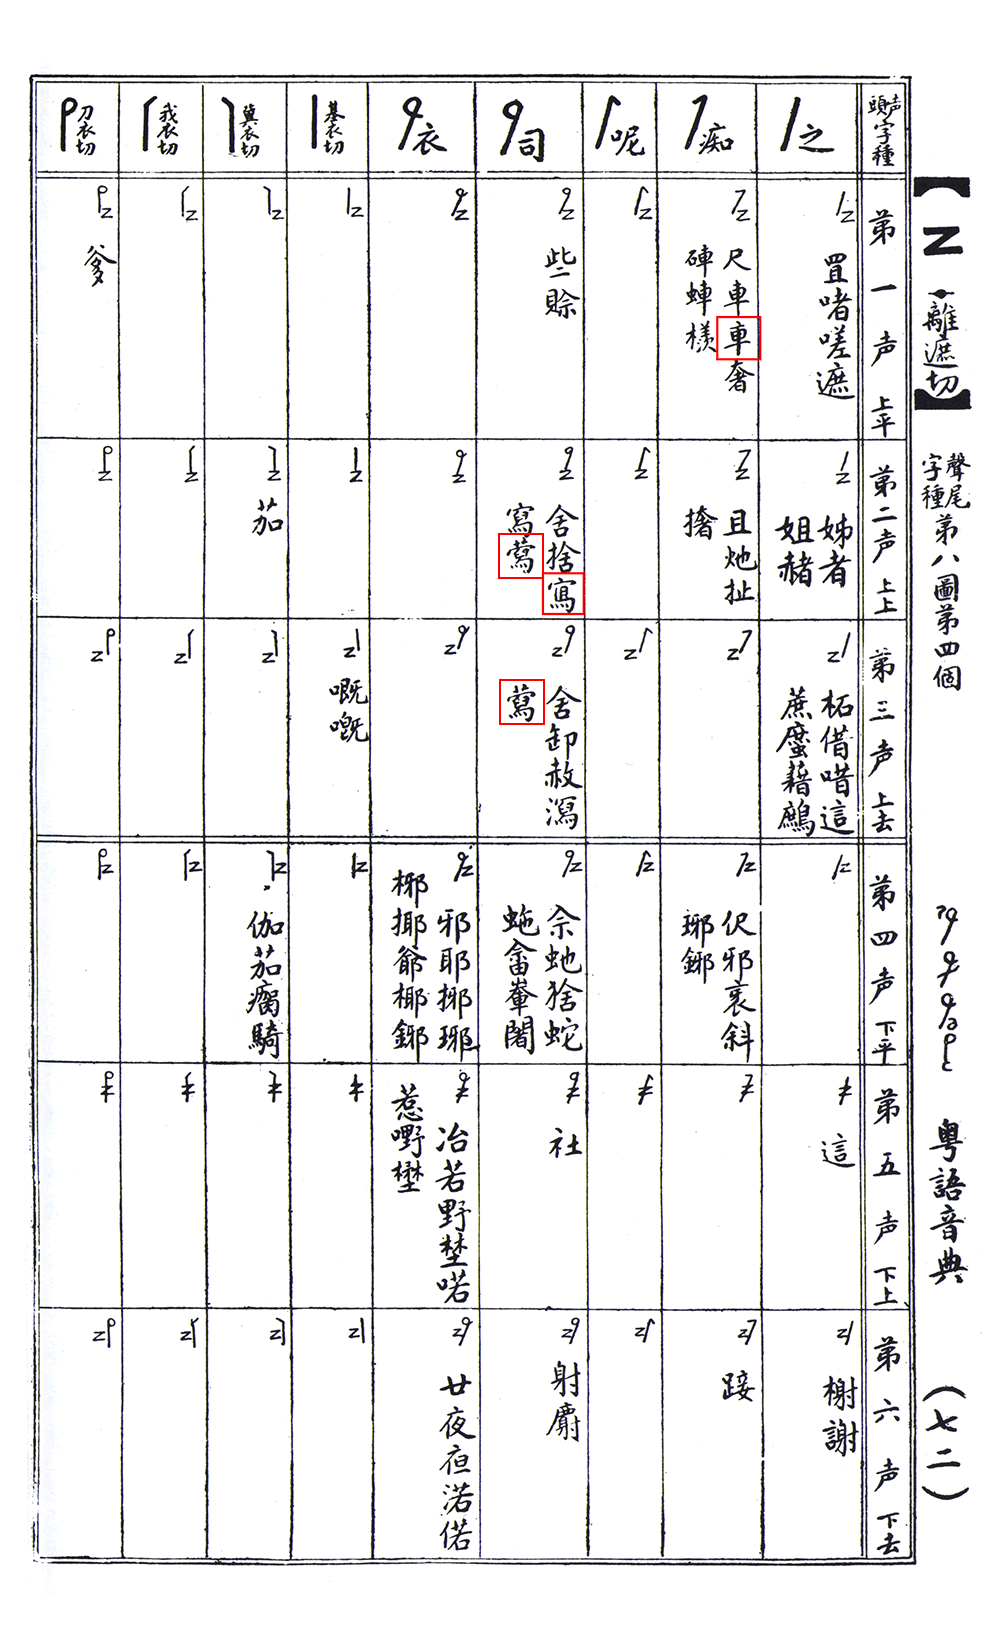 【Z・離遮切】
聲尾字種第八圖第四個
粵語音典
(七二)
声頭字種
之
痴
呢
司
衣
基衣切
冀衣切
我衣切
刀衣切
第一声 上平
罝啫嗟遮
尺車車奢
硨蛼樣
些賒
爹
第二声 上上
姊者
姐赭
且灺扯
撦
舍捨寫
寫蕮
茄
第三声 上去
柘借唶這
蔗䗪藉鷓
舍卸赦瀉
蕮
嘅嘅
第四声 下平
伬邪衺斜
琊鎁
佘虵猞蛇
虵畬輋闍
邪耶捓琊
椰揶爺椰鎁
伽茄瘸騎
第五声 下上
這
社
冶若野埜喏
惹嘢
第六声 下去
榭謝
射麝
廿夜亱渃偌